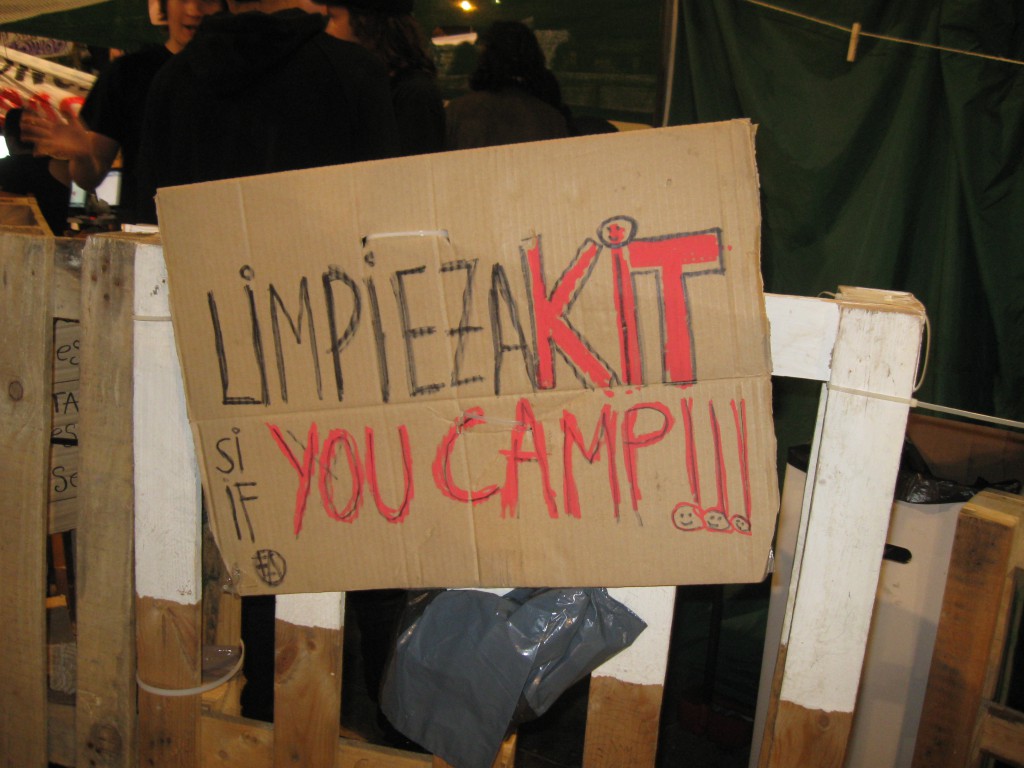 LiMPiEZAKiT
Si
iF
YOU CAMP!!!
es
TA
es
Se